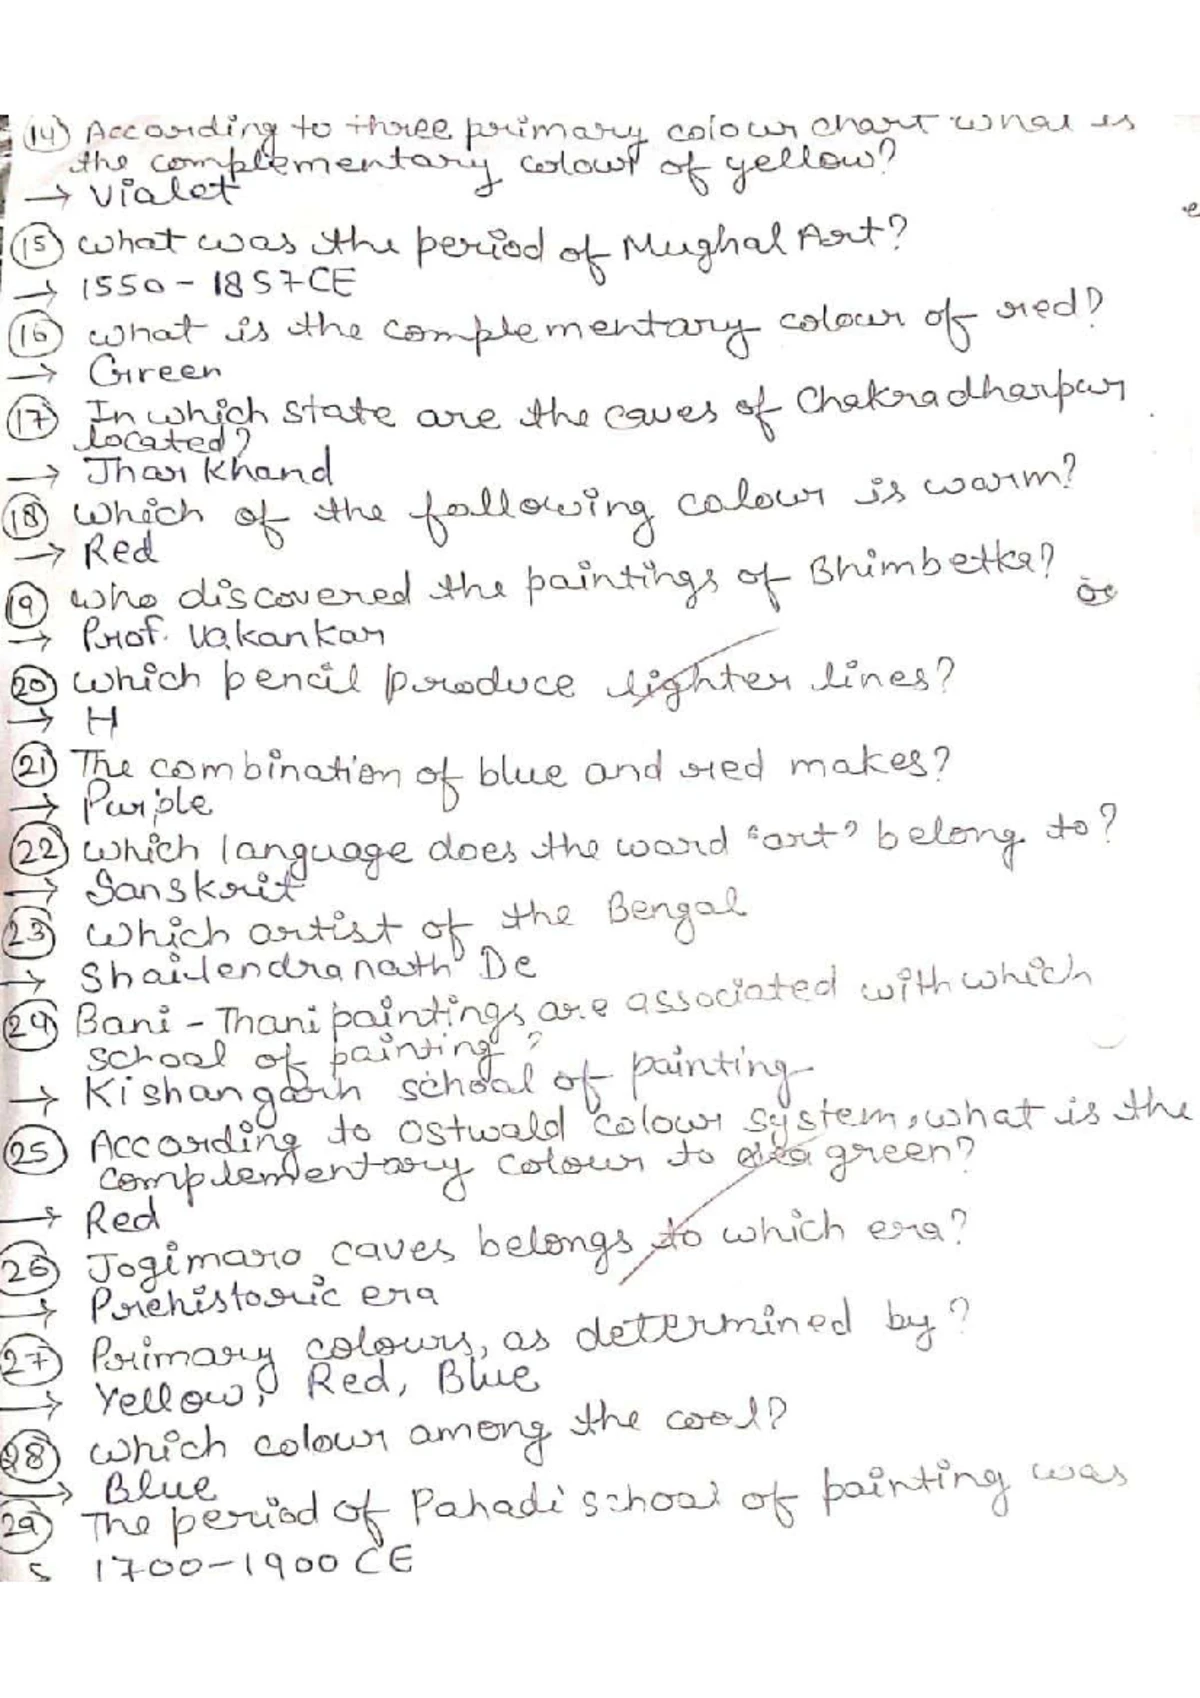 14) According to three primary colour chart what is
the complementary colour of yellow?
→ Vialet
15) What was the period of Mughal Art?
→ 1550 - 1857 CE
16) what is the complementary colour of red?
→ Green
17) In which state are the caves of Chakradharpur
located?
→ Jharkhand
18) which of the following colour is warm?
→ Red
19) who discovered the paintings of Bhimbetka?
→ Prof. Vakankar
20) which pencil produce lighter lines?
→ H
21) The combination of blue and red makes?
→ Purple
22) which language does the word "art" belong to?
→ Sanskrit
23) which artist of the Bengal
→ Shailendranath De
24) Bani - Thani paintings are associated with which
school of painting?
→ Kishangarh school of painting
25) According to Ostwald colour system, what is the
complementary colour to sea green?
→ Red
26) Jogimaro caves belongs to which era?
→ Prehistoric era
27) Primary colours, as determined by?
→ Yellow, Red, Blue
28) which colour among the cool?
→ Blue
29) The period of Pahadi school of painting was
1700-1900 CE